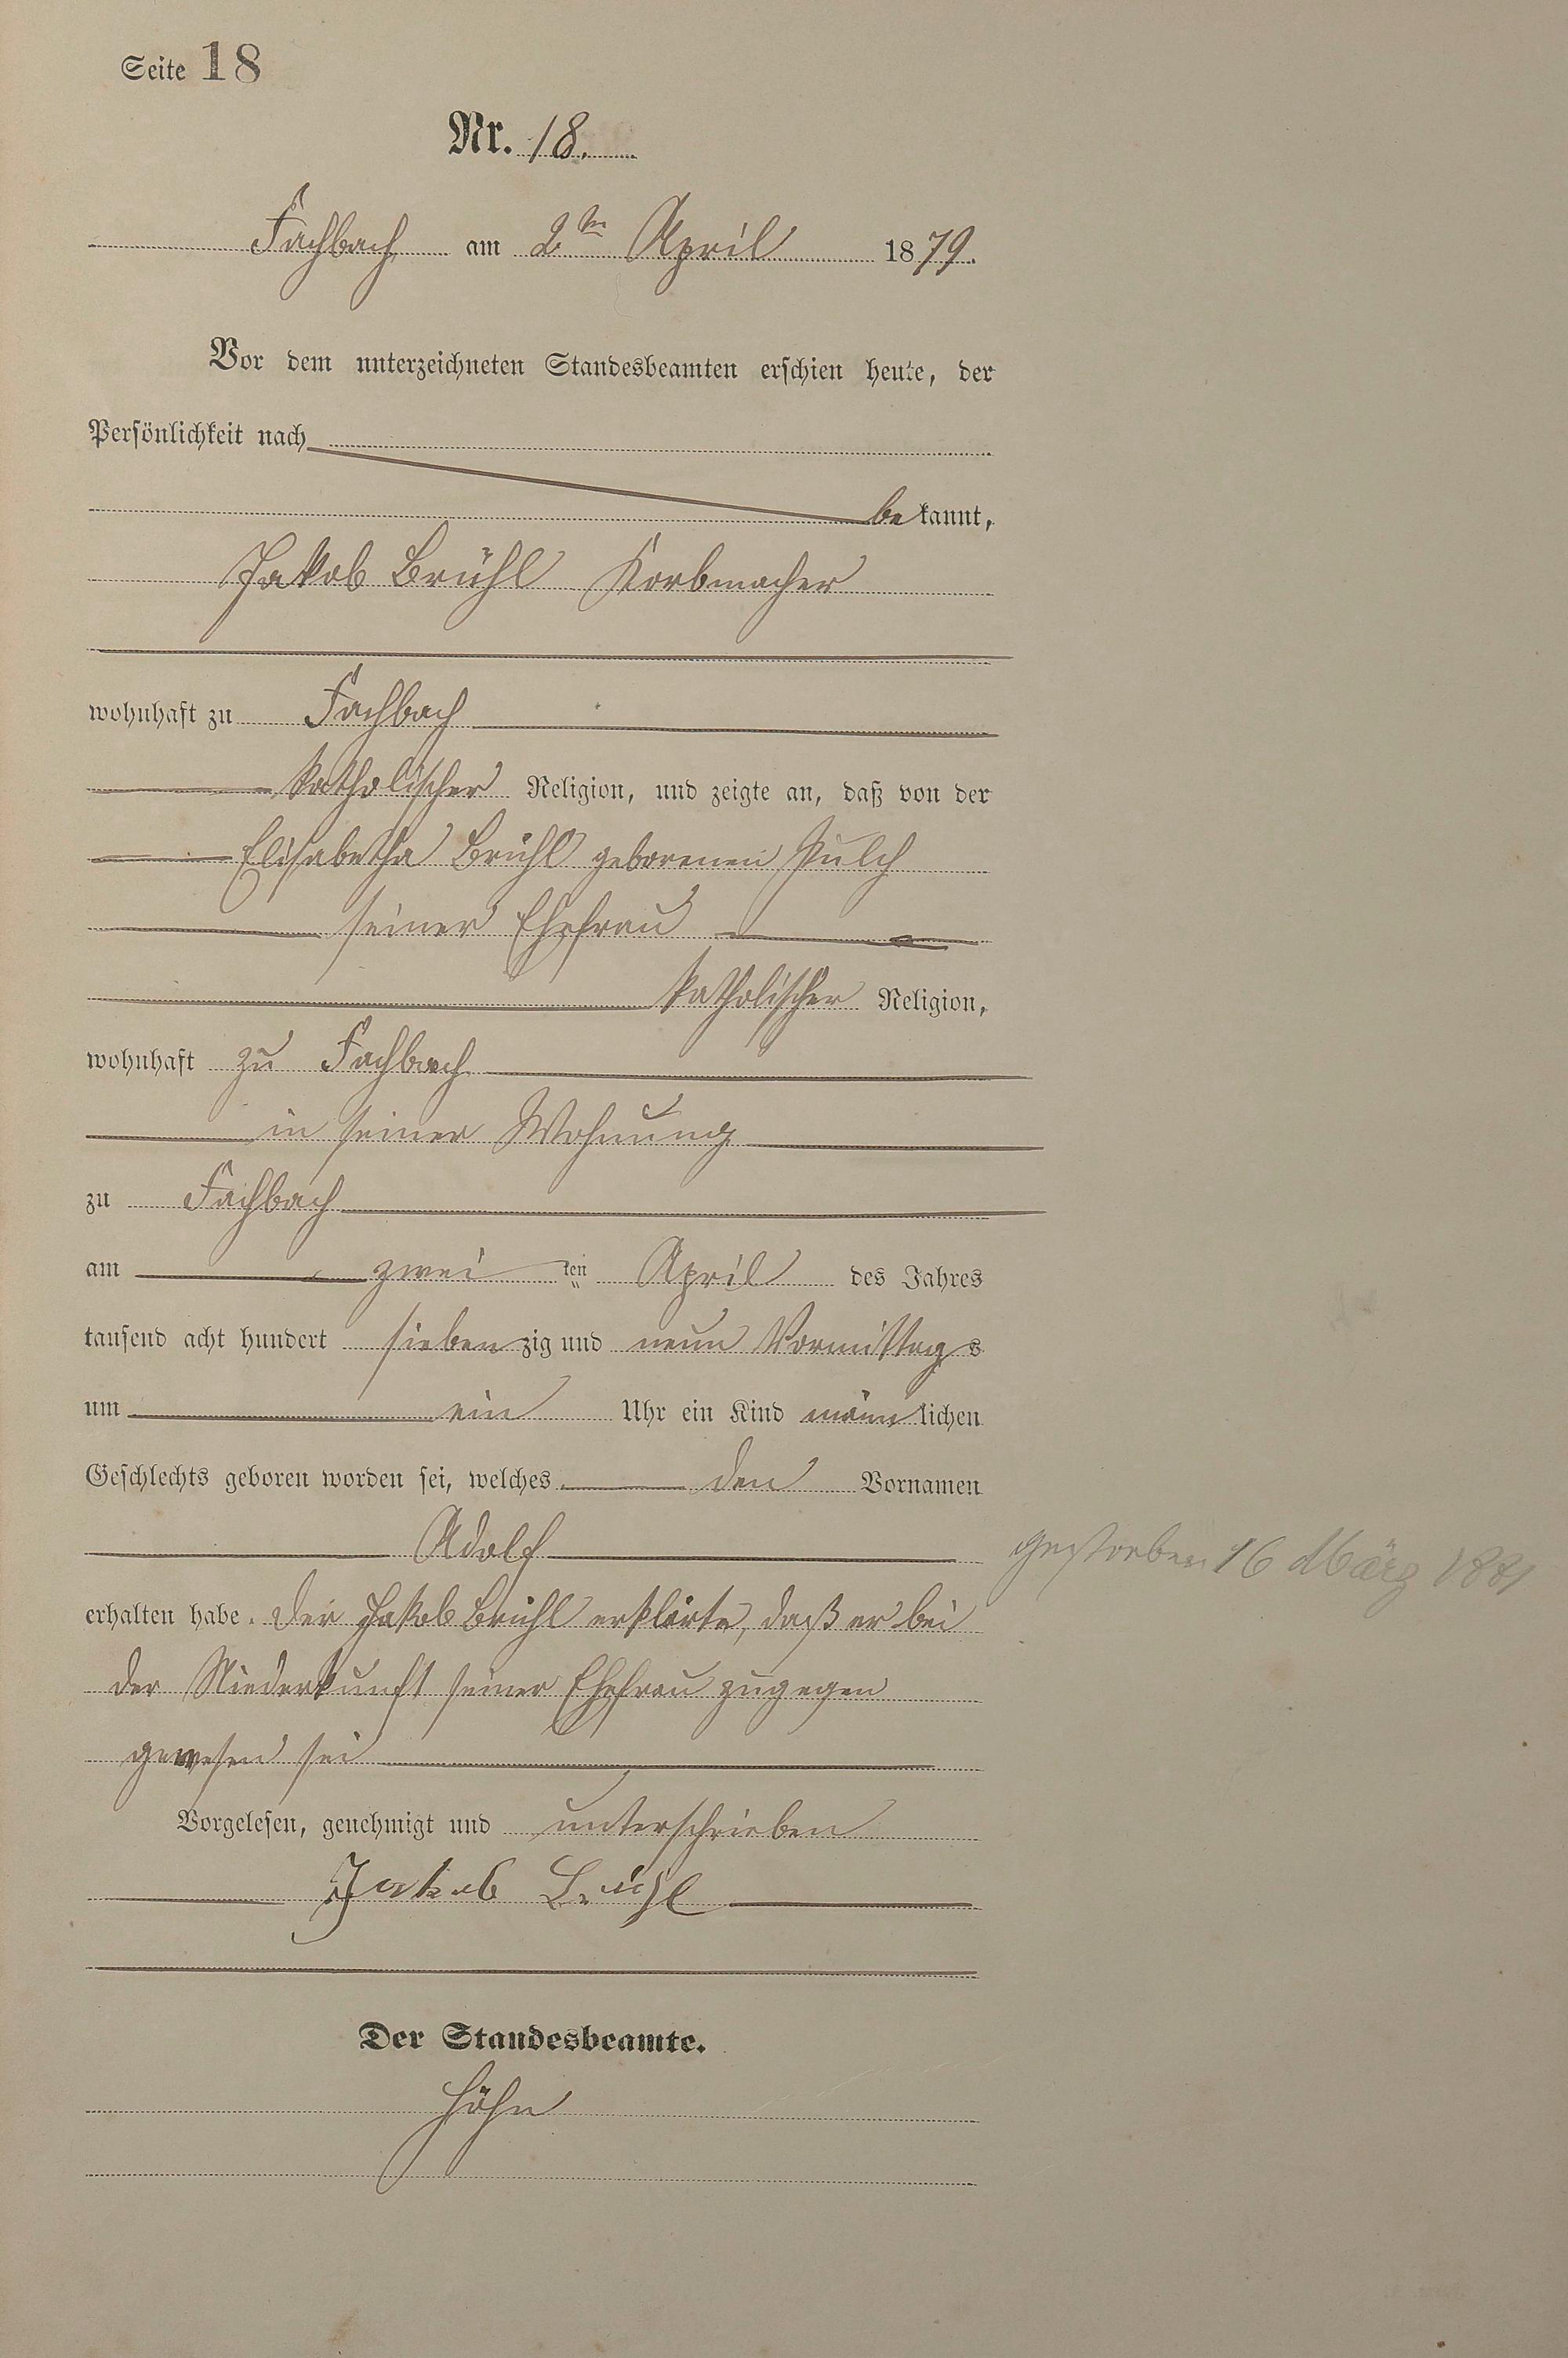 Seite 18
Nr. 18.
Fachbach am 2ten April 1879.
Vor dem unterzeichneten Standesbeamten erschien heute, der
Persönlichkeit nach
bekannt,
Jakob Brühl Korbmacher
wohnhaft zu Fachbach
katholischer Religion, und zeigte an, daß von der
Elisabetha Brühl geborenen Pulch
seiner Ehefrau
katholischer Religion,
wohnhaft zu Fachbach
in seiner Wohnung
zu Fachbach
am zweiten April des Jahres
tausend acht hundert siebenzig und neun Vormittags
um ein Uhr ein Kind männlichen
Geschlechts geboren worden sei, welches den Vornamen
Adolf
gestorben 16 März 1881
erhalten habe. Der Jakob Brühl erklärte, daß er bei
der Niederkunft seiner Ehefrau zugegen
gewesen sei
Vorgelesen, genehmigt und unterschrieben
Jakob Brühl
Der Standesbeamte.
Höhn